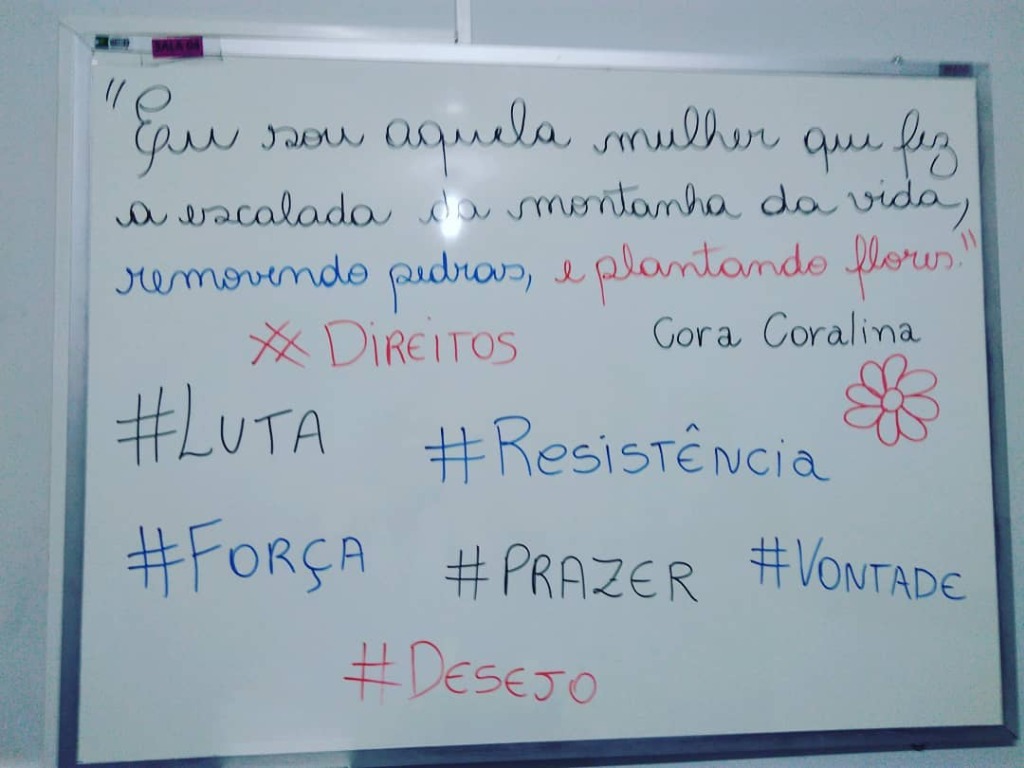 SALA 04
"Eu sou aquela mulher que fez
a escalada da montanha da vida,
removendo pedras, e plantando flores."
Cora Coralina
# DIREITOS
#LUTA
#RESISTÊNCIA
#FORÇA #PRAZER #VONTADE
#DESEJO